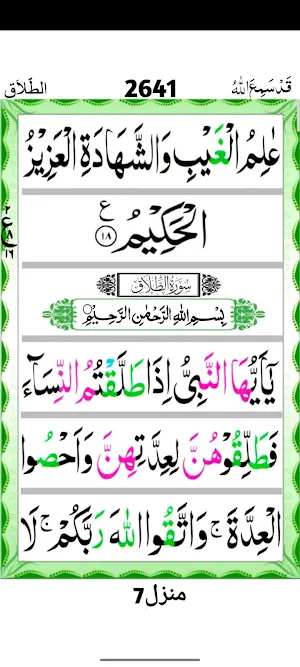 الطَّلَاق 2641 قَدْ سَمِعَ اللّٰهُ
عٰلِمُ الْغَيْبِ وَالشَّهَادَةِ الْعَزِيْزُ
الْحَكِيْمُ ع ١٨
٢ ع ٨ ١٦
سُوْرَةُ الطَّلَاقِ
بِسْمِ اللّٰهِ الرَّحْمٰنِ الرَّحِيْمِ
يٰۤاَيُّهَا النَّبِيُّ اِذَا طَلَّقْتُمُ النِّسَآءَ
فَطَلِّقُوْهُنَّ لِعِدَّتِهِنَّ وَاَحْصُوا
الْعِدَّةَ ۚ وَاتَّقُوا اللّٰهَ رَبَّكُمْ ۚ لَا
منزل 7